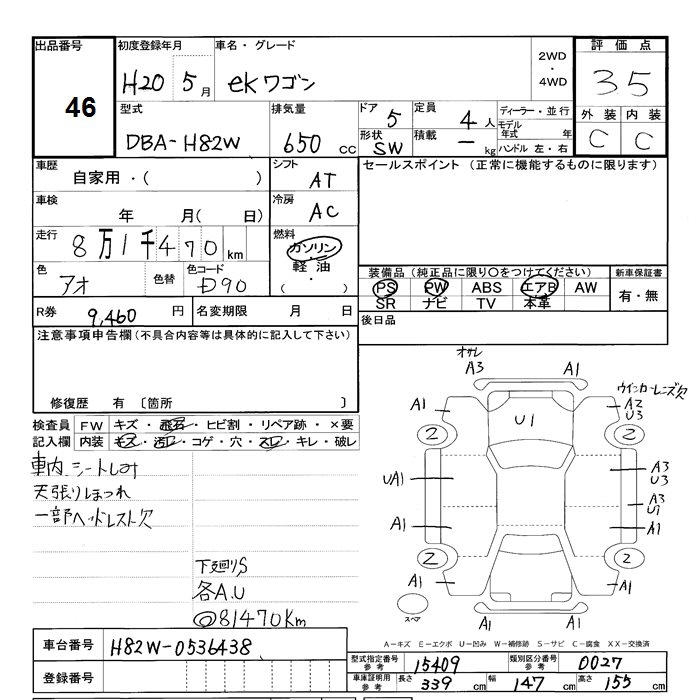 出品番号 初度登録年月 車名・グレード 2WD・4WD 評価点
46 H20 5月 ekワゴン 35
型式 排気量 ドア 定員 ディーラー・並行 外装 内装
DBA-H82W 650cc 5 4人 モデル年式 年 C C
形状 SW 積載 ー kg ハンドル 左・右
車歴 自家用・( ) シフト AT セールスポイント (正常に機能するものに限ります)
車検 年 月( 日) 冷房 AC
走行 8万1千470km 燃料 ガソリン・軽油 ( ・ )
色 アオ 色替 色コード D90
装備品(純正品に限り○をつけてください) 新車保証書
PS PW ABS エアB AW 有・無
SR ナビ TV 本革
R券 9,460円 名変期限 月 日 後日品
注意事項申告欄(不具合内容等は具体的に記入して下さい)
修復歴 有 〔箇所 〕
検査員記入欄 FW キズ・飛石・ヒビ割・リペア跡・×要
内装 キズ・汚レ・コゲ・穴・スレ・キレ・破レ
車内シートしみ
天張りほつれ
一部ヘッドレスト欠
下廻りS
各A.U
◎81470Km
オサレ
A3 A1
ウインカーレンズ欠
A1 U1 A2
U3
2 2
UA1 A3
U3
A3
U1
A1 A1
2 2
A1 A1
スペア
A1 A1
A-キズ E-エクボ U-凹み W-補修跡 S-サビ C-腐食 XX-交換済
車台番号 H82W-0536438
登録番号
型式指定番号参考 15409 類別区分番号参考 0027
車庫証明用参考 長さ 339cm 幅 147cm 高さ 155cm